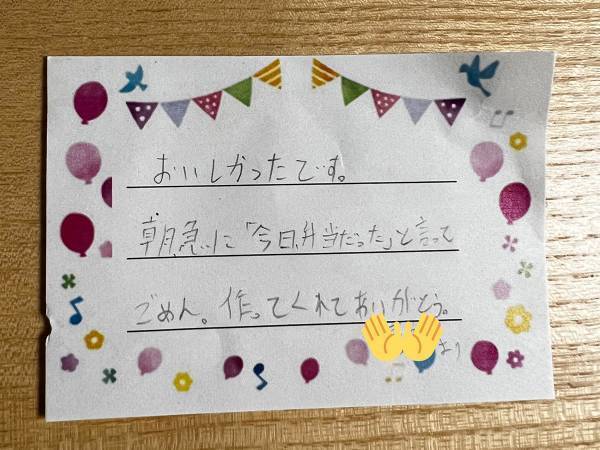 おいしかったです。
朝、急に「今日、弁当だった」と言って
ごめん。作ってくれてありがとう。
より